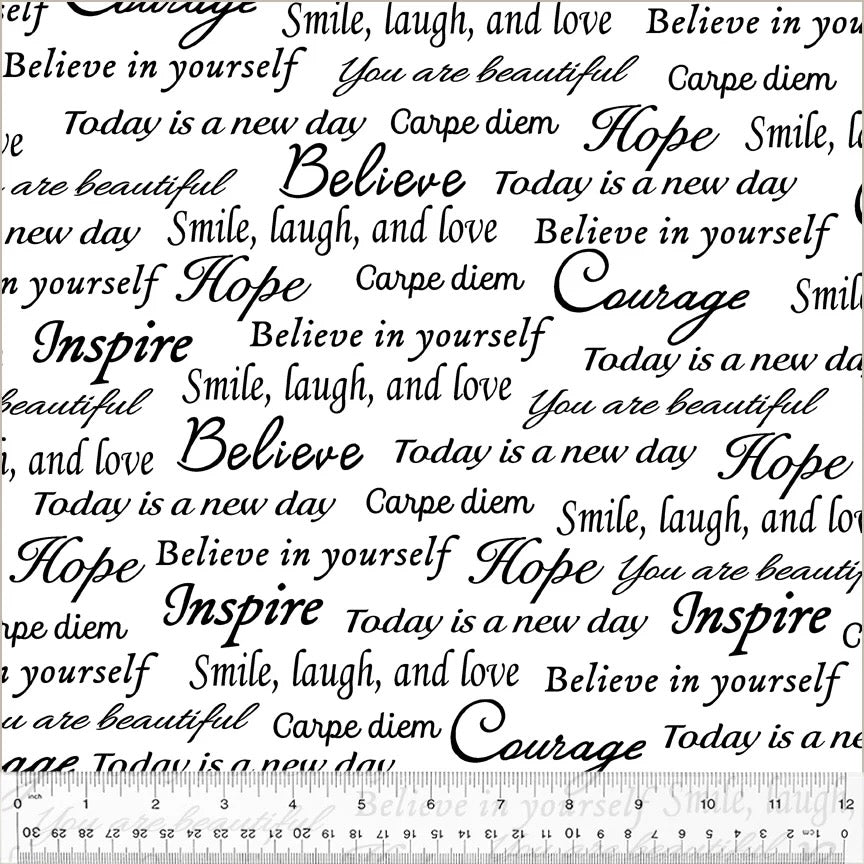 self Courage Smile, laugh, and love Believe in you
Believe in yourself You are beautiful Carpe diem
Today is a new day Carpe diem Hope Smile, l
ve
are beautiful Believe Today is a new day
new day Smile, laugh, and love Believe in yourself
n yourself Hope Carpe diem Courage Smil
Inspire Believe in yourself Today is a new da
beautiful Smile, laugh, and love You are beautiful
h, and love Believe Today is a new day Hope
Today is a new day Carpe diem Smile, laugh, and lov
Hope Believe in yourself Hope You are beautif
rpe diem Inspire Today is a new day Inspire C
n yourself Smile, laugh, and love Believe in yourself
u are beautiful Carpe diem Courage Today is a ne
age Today is a new day
Believe in yourself Smile, laugh,
0 inch 1 2 3 4 5 6 7 8 9 10 11 12
You are beautiful
30 29 28 27 26 25 24 23 22 21 20 19 18 17 16 15 14 13 12 11 10 9 8 7 6 5 4 3 2 1cm 0
You are beautiful